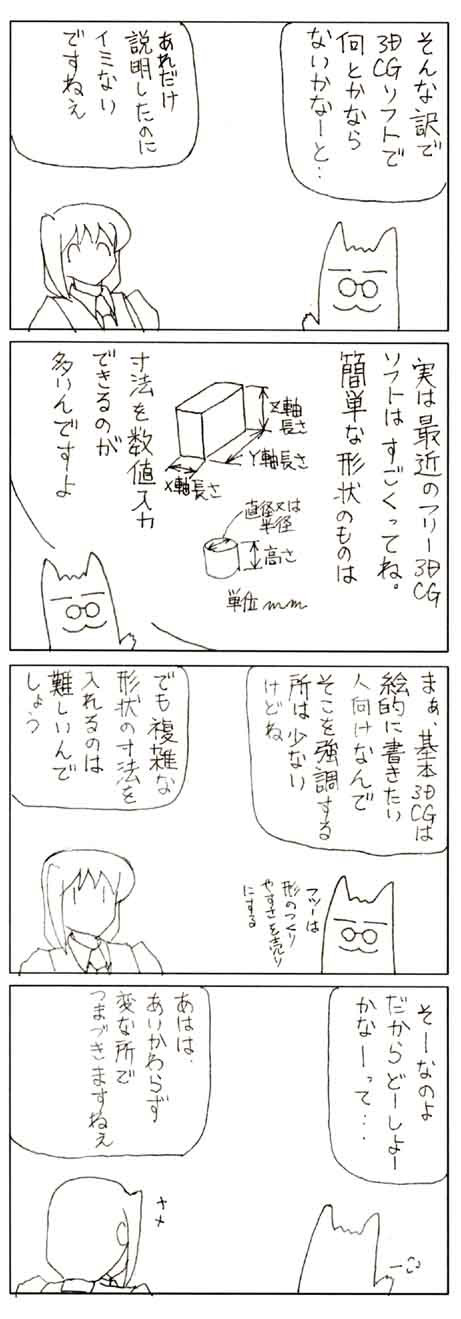 そんな訳で
3D
CGソフトで
何とかなら
ないかなーと‥
あれだけ
説明したのに
イミない
ですねぇ
実は最近のフリー3DCG
ソフトはすごくってね。
簡単な形状のものは
Z軸
長さ
Y軸長さ
X軸長さ
直径又は
半径
高さ
単位mm
寸法を数値入力
できるのが
多いんですよ
まぁ、基本3DCGは
絵的に書きたい
人向けなんで
そこを強調する
所は少ない
けどね
フツーは
形のつくり
やすさを売り
にする
でも複雑な
形状の寸法を
入れるのは
難しいんで
しょう
そーなのよ
だからどーしよー
かなーって‥‥
あはは、
あいかわらず
変な所で
つまづきますねぇ